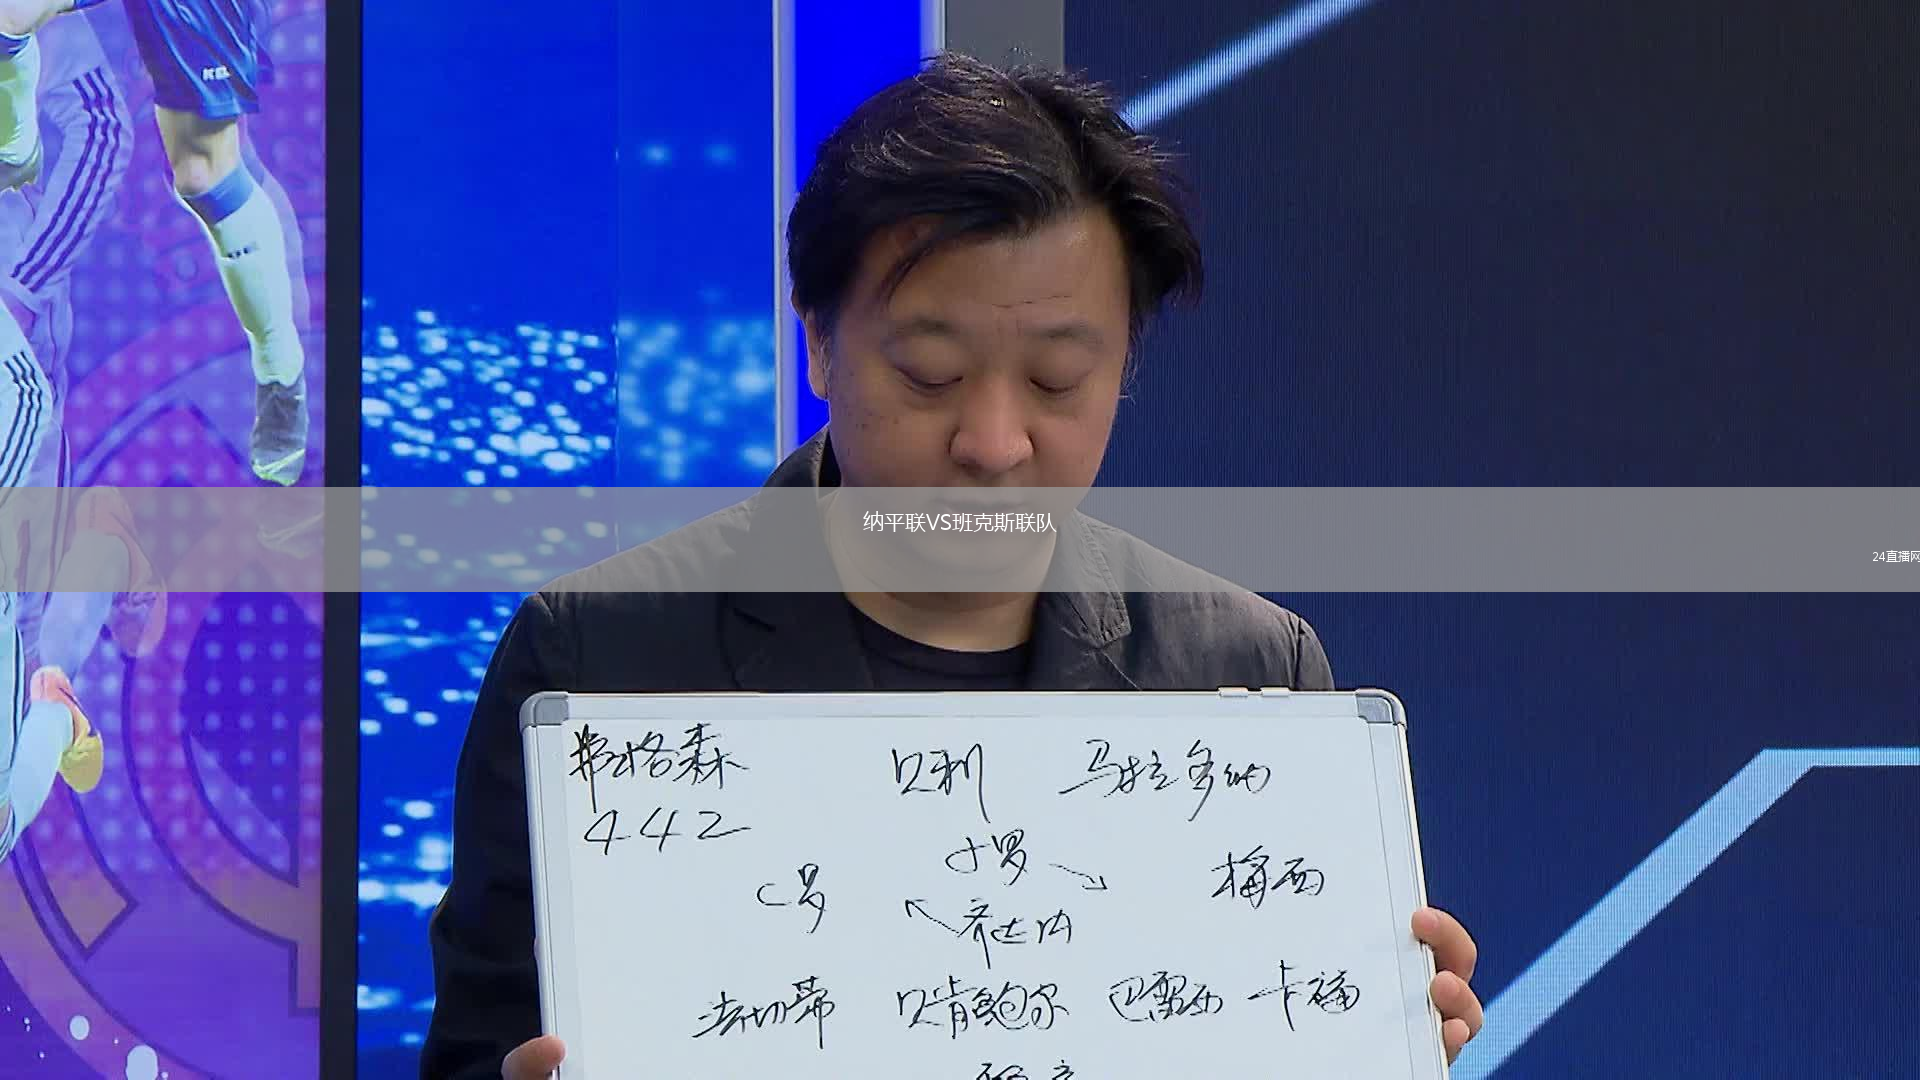 纳平联VS班克斯联队
24直播网
弗格森 贝利 马拉多纳
442
小罗
C罗 梅西
齐达内
法切蒂 贝肯鲍尔 巴雷西 卡福